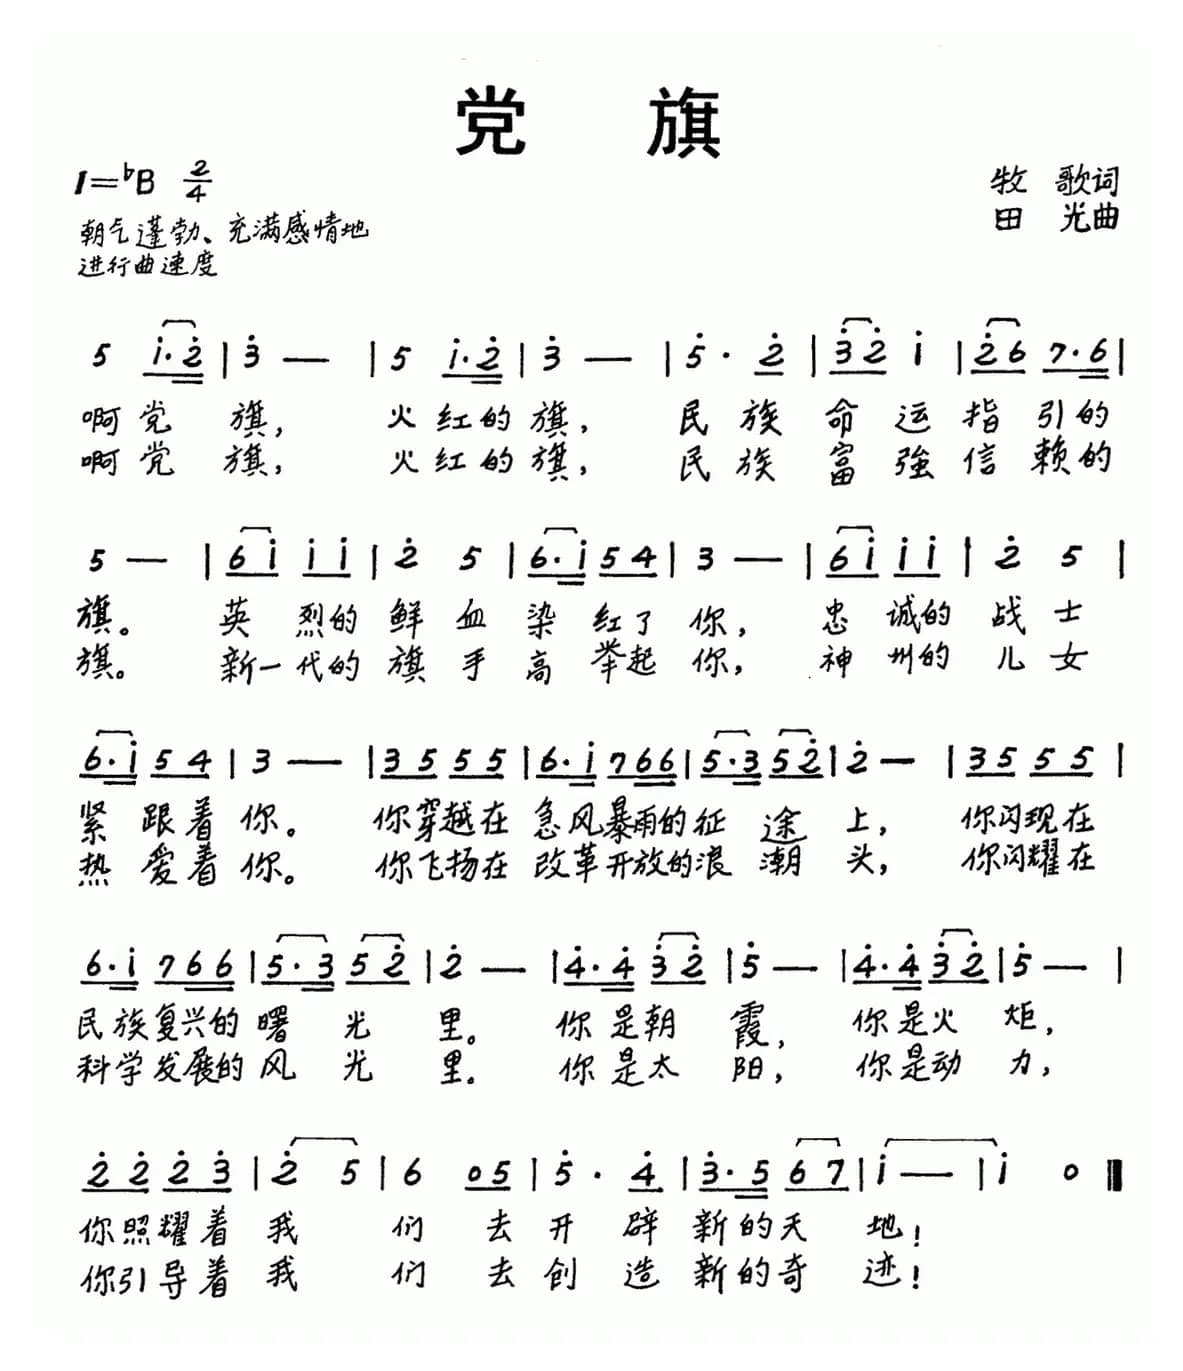 党 旗
1=♭B 2/4
牧 歌词
田 光曲
朝气蓬勃、充满感情地
进行曲速度
5 i·2̇ | 3̇ — | 5 i·2̇ | 3̇ — | 5̇· 2̇ | 3̇2̇ i | 2̇6 7·6 |
啊党 旗， 火红的旗， 民 族 命 运 指 引的
啊党 旗， 火红的旗， 民 族 富 強 信 赖的
5 — | 6i ii | 2̇ 5 | 6·i 54 | 3 — | 6i ii | 2̇ 5 |
旗。 英 烈的 鲜 血 染 红了 你， 忠 诚的 战士
旗。 新一代的 旗 手 高 举起 你， 神 州的 儿女
6·i 54 | 3 — | 35 55 | 6·i 766 | 5·3 52̇ | 2̇ — | 35 55 |
紧 跟着 你。 你穿越在 急风暴雨的征 途 上， 你闪现在
热 爱着 你。 你飞扬在 改革开放的浪 潮 头， 你闪耀在
6·i 766 | 5·3 52̇ | 2̇ — | 4̇·4̇ 3̇2̇ | 5̇ — | 4̇·4̇ 3̇2̇ | 5̇ — |
民族复兴的 曙 光 里。 你是朝 霞， 你是火 炬，
科学发展的 风 光 里。 你是太 阳， 你是动 力，
2̇2̇ 2̇3̇ | 2̇ 5 | 6 05 | 5̇· 4̇ | 3̇·5 67 | i — | i 0 ‖
你照耀着 我 们 去 开 辟 新的天 地！
你引导着 我 们 去 创 造 新的奇 迹！